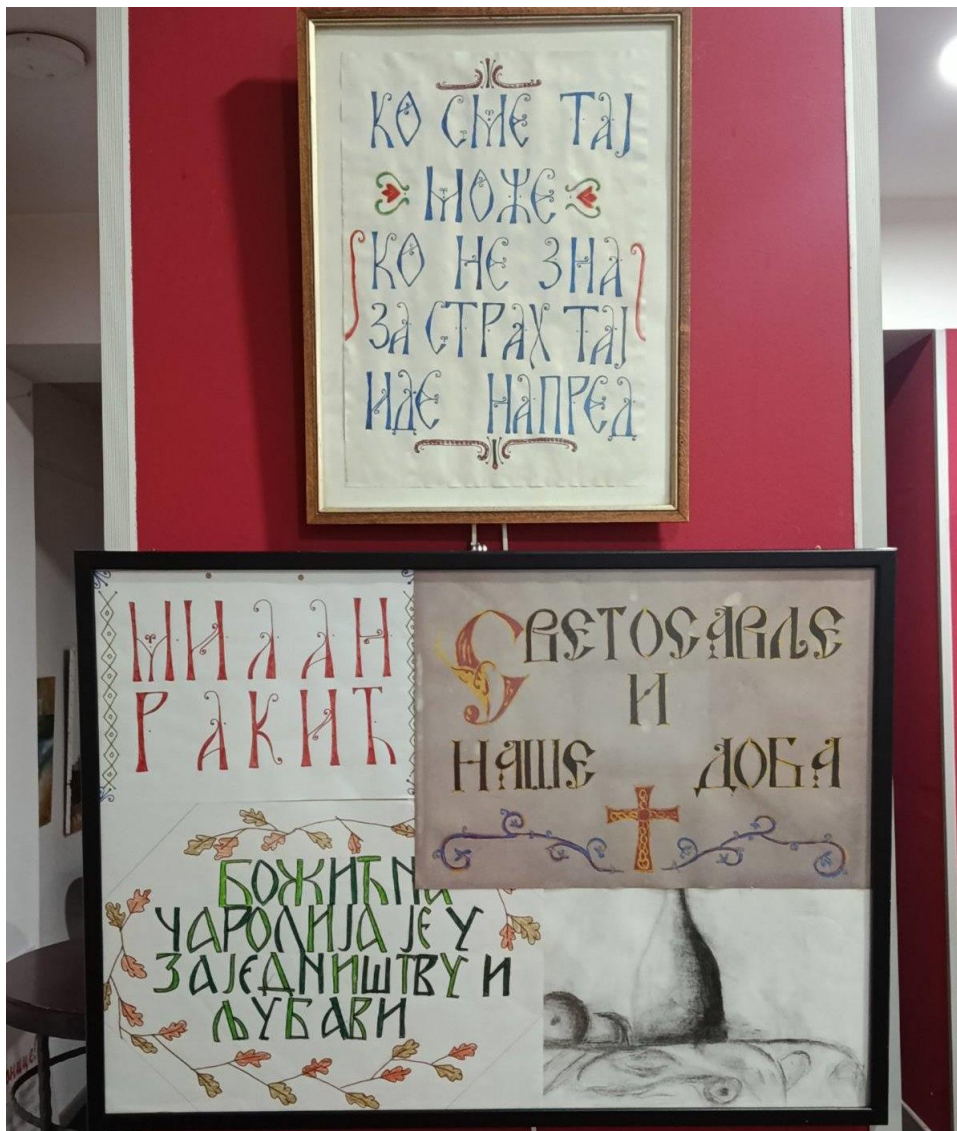 КО СМЕ ТАЈ
МОЖЕ
КО НЕ ЗНА
ЗА СТРАХ ТАЈ
ИДЕ НАПРЕД
МИЛАН
РАКИЋ
СВЕТОСАВЉЕ
И
НАШЕ ДОБА
БОЖИЋНА
ЧАРОЛИЈА ЈЕ У
ЗАЈЕДНИШТВУ И
ЉУБАВИ